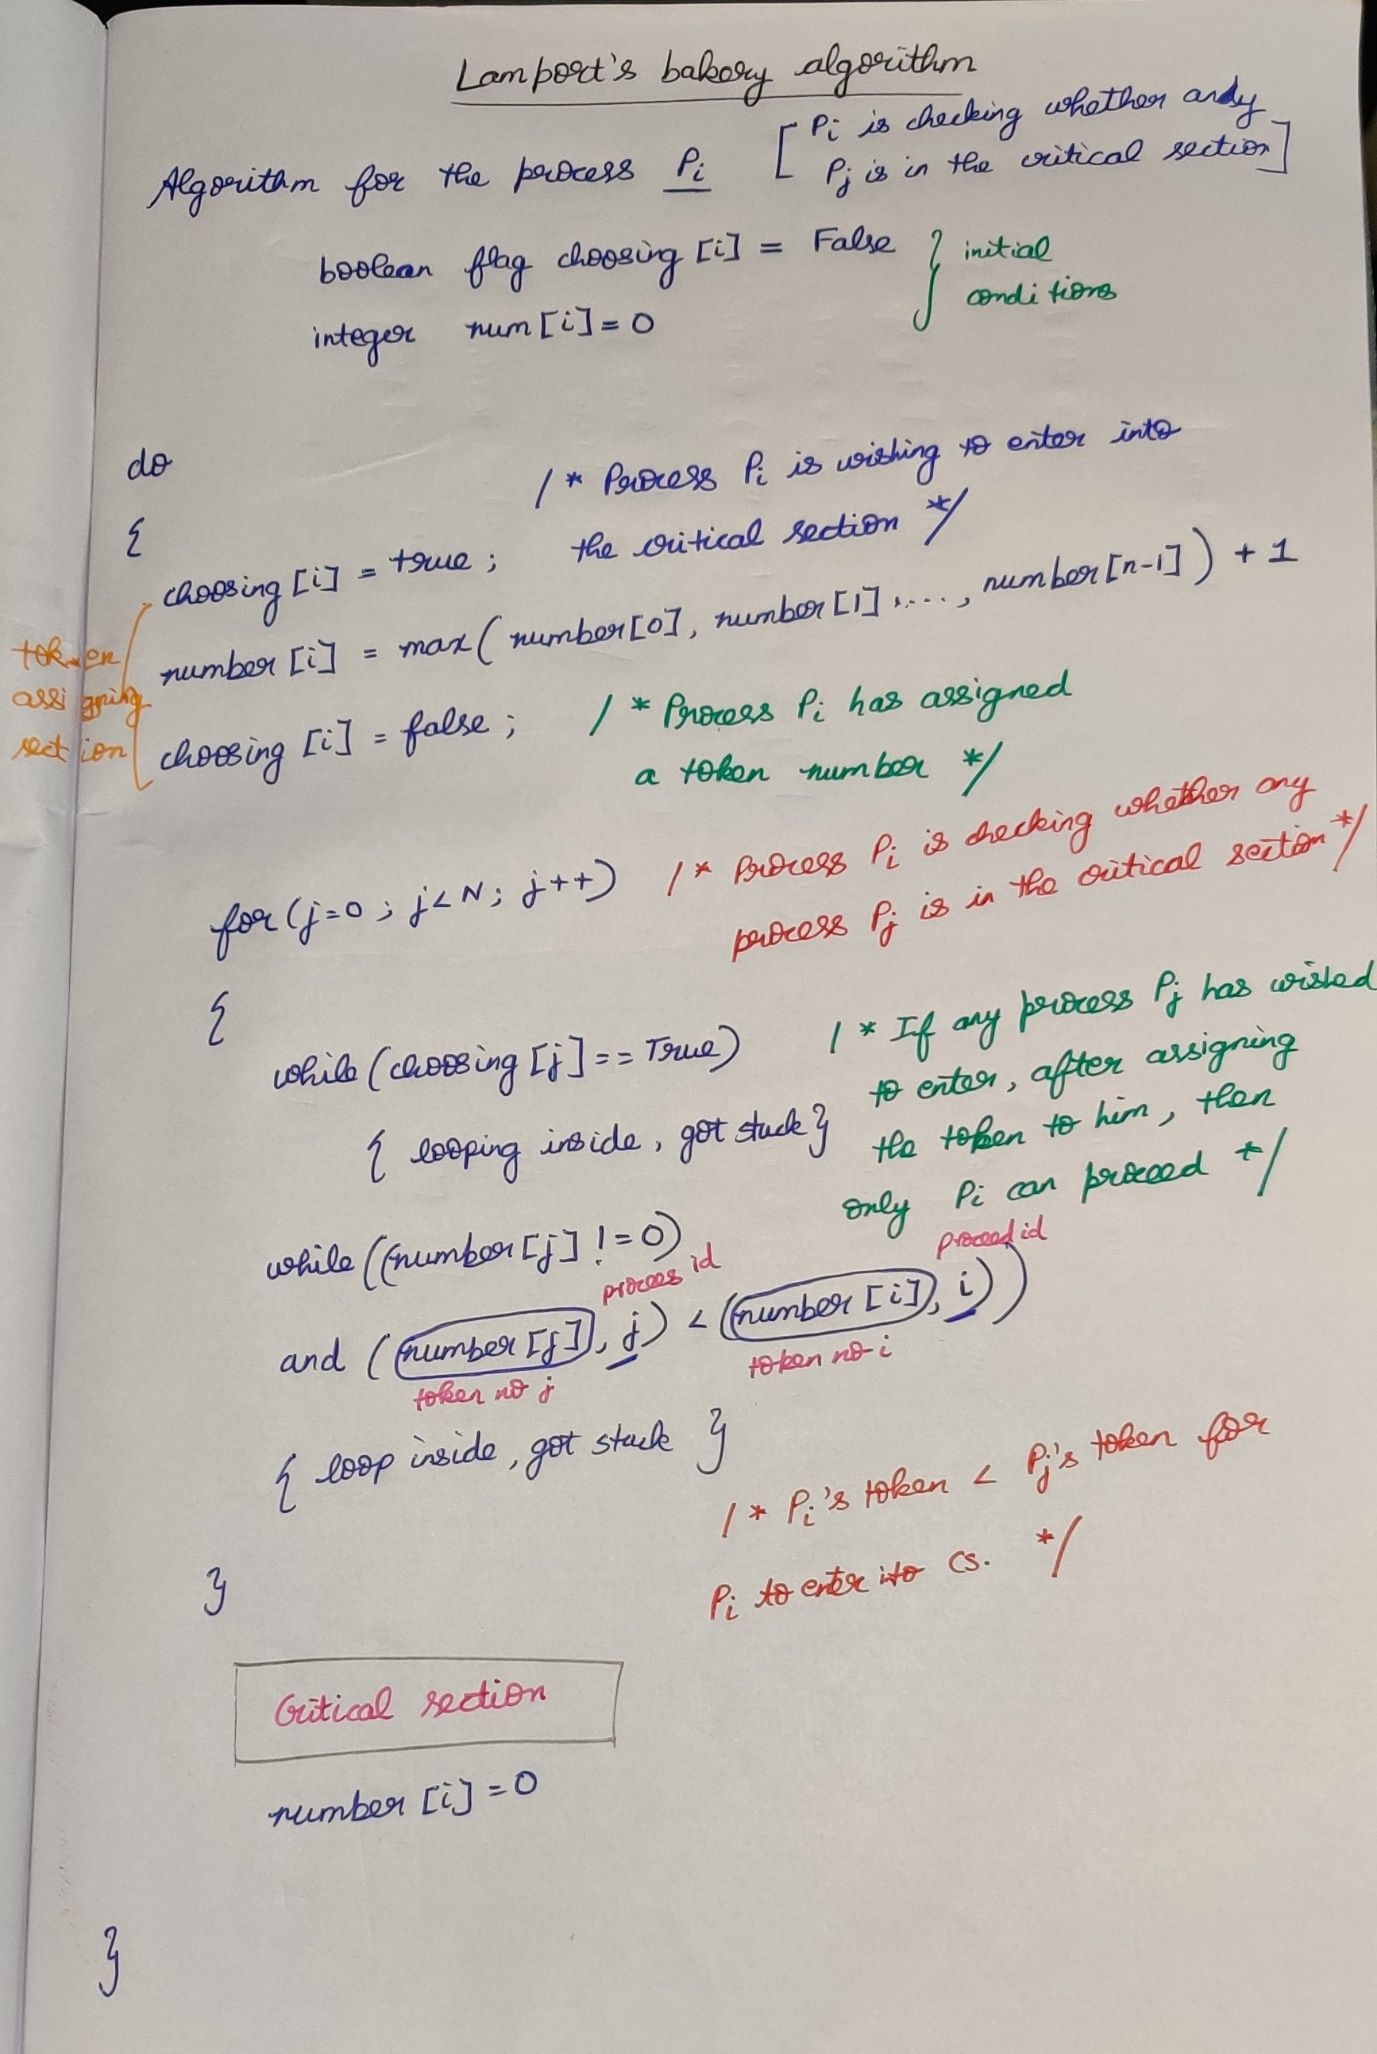 Lamport's bakery algorithm
Algorithm for the process Pi
[Pi is checking whether andy
Pj is in the critical section]
boolean flag choosing [i] = False
integer num [i] = 0
} initial
conditions
do
{
/* Process Pi is wishing to enter into
the critical section */
choosing [i] = true ;
number [i] = max ( number [0], number [1] ,...., number [n-1] ) + 1
choosing [i] = false ;
token
assigning
section
/* Process Pi has assigned
a token number */
for (j=0 ; j<N; j++)
/* Process Pi is checking whether any
process Pj is in the critical section */
{
while (choosing [j] == True)
{ looping inside, got stuck }
/* If any process Pj has wished
to enter, after assigning
the token to him, then
only Pi can proceed */
while ((number [j] != 0)
process id
proceed id
and (number [j], j) < (number [i], i))
token no j
token no i
{ loop inside, got stuck }
/* Pi's token < Pj's token for
Pi to enter into CS. */
}
Critical section
number [i] = 0
}